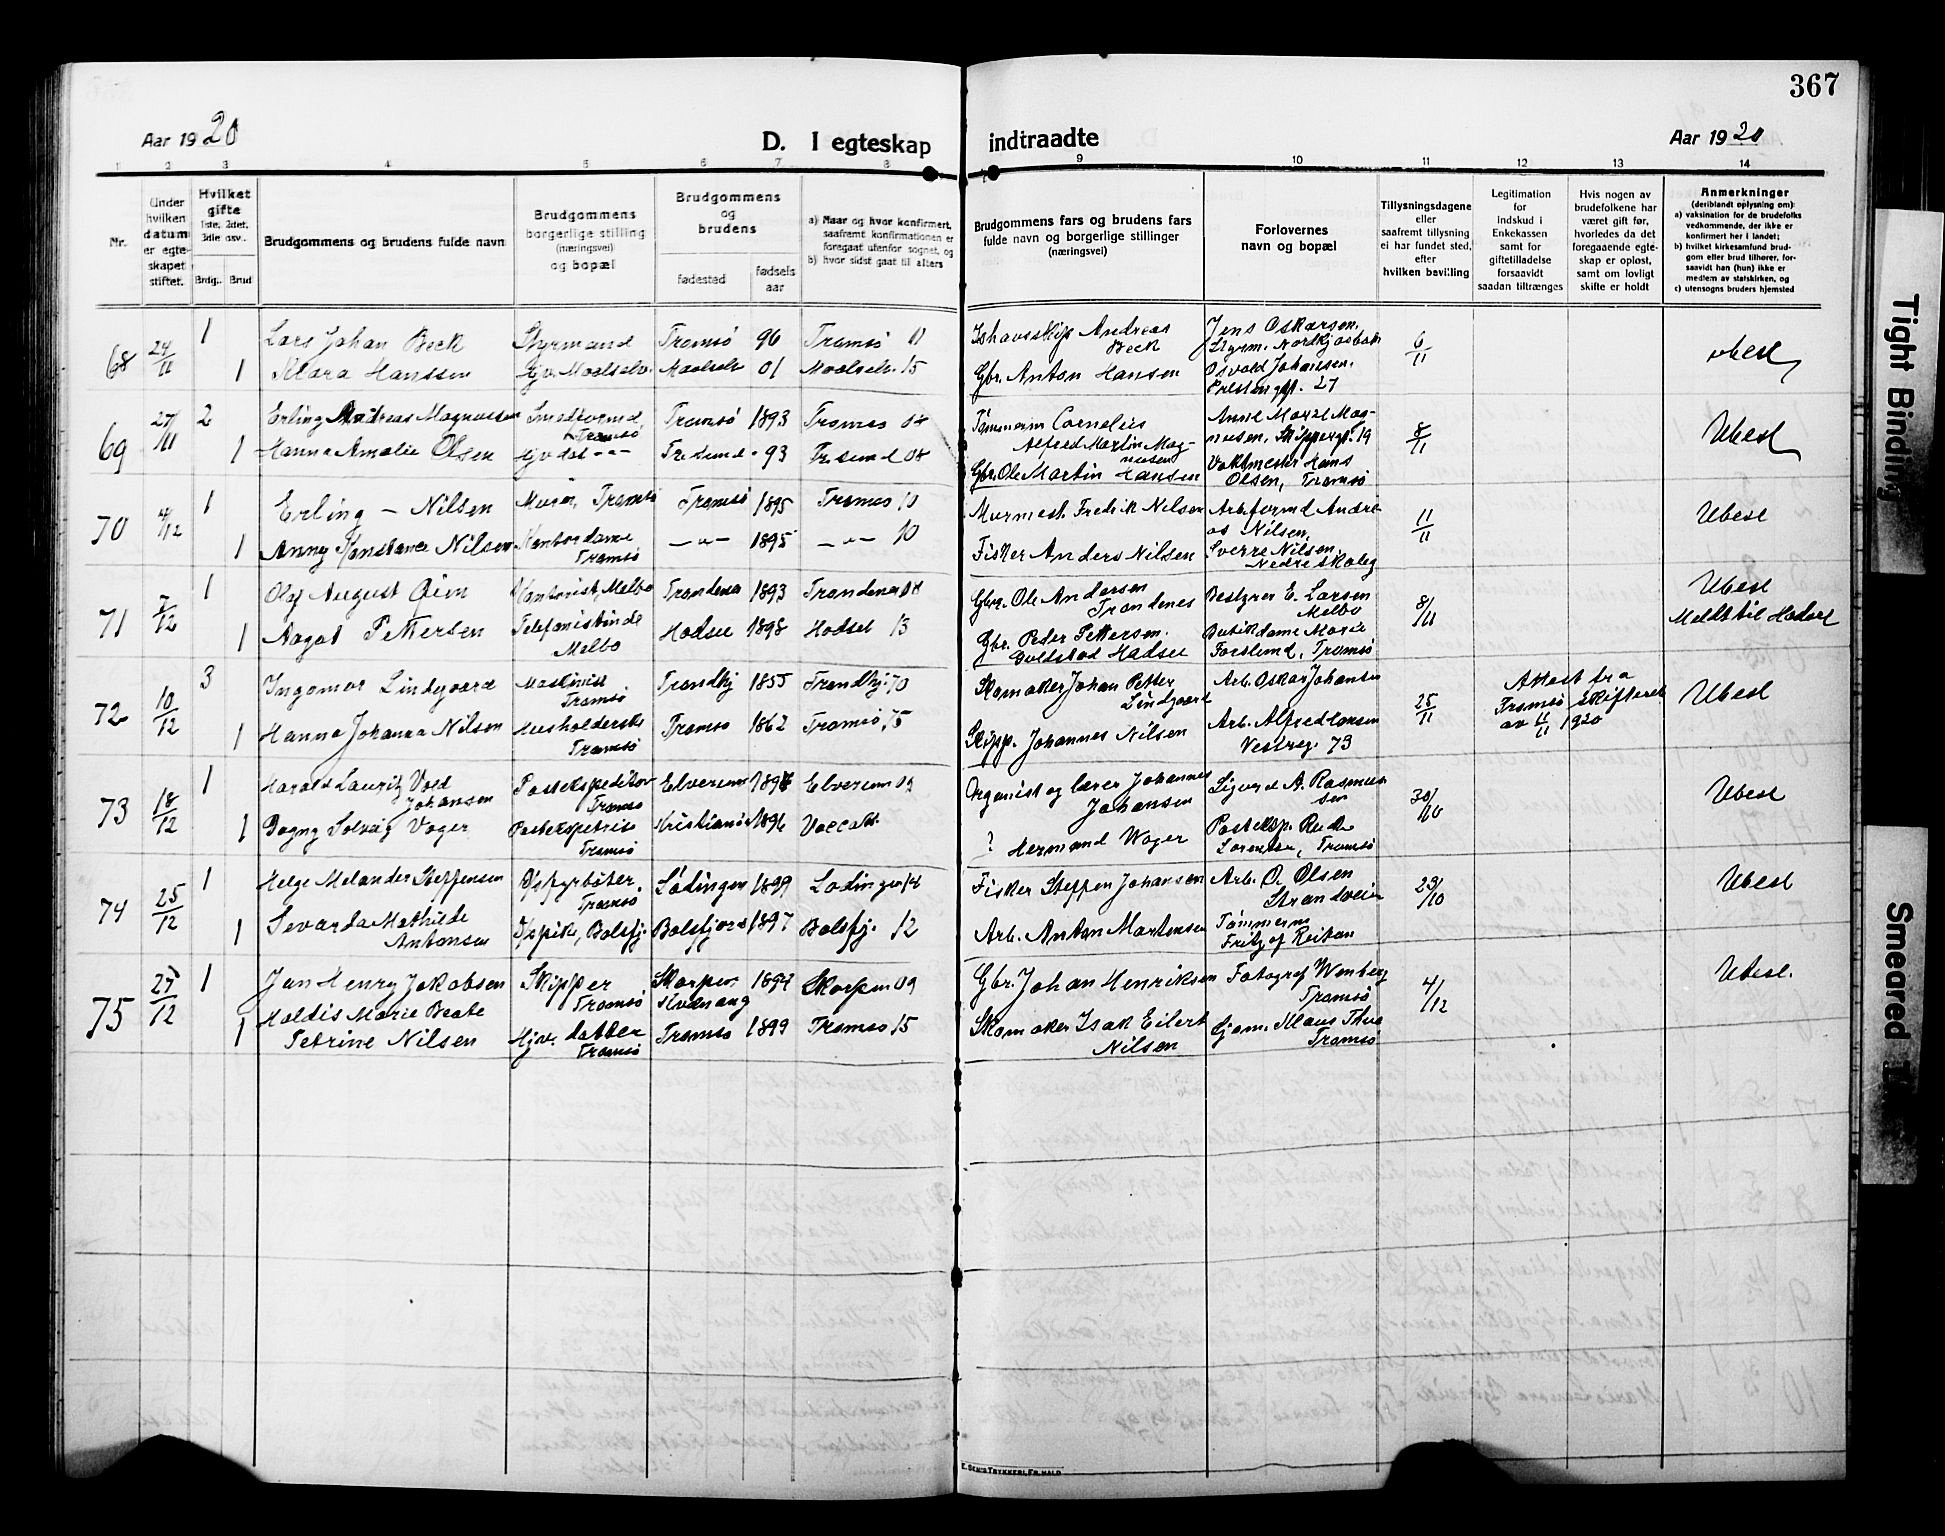 367
Aar 1920
D. I egteskap indtraadte
Aar 1920
1 2 3 4 5 6 7 8 9 10 11 12 13 14
Nr.
Under hvilken datum er egteskapet stiftet.
Hvilket gifte 1ste, 2det, 3die osv.
Brdg. Brud
Brudgommens og brudens fulde navn
Brudgommens borgerlige stilling (næringsvei) og bopæl
Brudgommens og brudens
fødested
fødselsaar
a) Naar og hvor konfirmert, saafremt konfirmationen er foregaat utenfor sognet, og
b) hvor sidst gaat til alters
Brudgommens fars og brudens fars fulde navn og borgerlige stillinger (næringsvei)
Forlovernes navn og bopæl
Tillysningsdagene eller saafremt tillysning ei har fundet sted, efter hvilken bevilling
Legitimation for indskud i Enkekassen samt for giftetilladelse forsaavidt saadan tiltrænges
Hvis nogen av brudefolkene har været gift før, hvorledes da det foregaaende egteskap er opløst, samt om lovligt skifte er holdt
Anmerkninger (deriblandt oplysning om):
a) vaksination for de brudefolks vedkommende, der ikke er konfirmert her i landet;
b) hvilket kirkesamfund brudgom eller brud tilhører, forsaavidt han (hun) ikke er medlem av statskirken, og
c) utensogns bruders hjemsted
68 24/11 1 Lars Johan Beck Styrmand Tromsö 96 Tromsö 11 Ishavsskip. Andreas Beck Jens Oskarsen, Styrm. Nordkjosbotn 6/11 Ubesl
1 Klara Hanssen Maalselv. Maalselv 01 Maalselv. 15 Gbr. Anton Hansen Osvald Johansen, 27
69 27/11 2 Erling Andreas Magnussen Tromsö Tromsö 1893 Tromsö 08 Tömmerm Cornelius Alfred Martin Magnusen Magnusen, Skipperg. 19 8/11 Ubesl
1 Hanna Amalie Olsen Hjv. det -"- 93 08 Gbr. Ole Martin Hansen Vaktmester Hans Olsen, Tromsö
70 4/12 1 Erling – Nilsen Murer, Tromsö Tromsö 1895 Tromsö 10 Murmest. Fredrik Nilsen Arb.formd Andreas Nilsen, 11/11 Ubesl
1 Anny Konstance Nilsen Kontordame Tromsö -"- 1895 -"- 10 Fisker Anders Nilsen Sverre Nilsen, Nedre skoleg
71 7/12 1 Olaf August Qvim Kontorist, Melbo Trondenes 1893 Trondenes 08 Gbr. Ole Andersen Trondenes Bestyrer E. Larsen Melbo 8/11 Ubesl
1 Aagot Pettersen Telefonistinde Melbo Hadsel 1898 Hadsel 13 Gbr. Peder Pettersen. Hadsel Butikdame Marie Forslund, Tromsö Meldt til Hadsel
72 10/12 3 Ingemar Lindgaard Maskinist Tromsö Trondhj 1855 Trondhj. 70 Skomaker Johan Petter Lindgaard Arb. Oskar Johansen 25/11 Attest fra Tromsö skifteret av 11/11 1920 Ubesl
1 Hanna Johanna Nilsen Husholderske Tromsö Tromsö 1862 Tromsö, 75 Skipp. Johannes Nilsen Arb. Alfred Hansen Vestreg. 73
73 18/12 1 Harald Lauritz Vold Johansen Postekspeditör Tromsö Elverum Elverum 09 Organist og lærer Johannes Johansen Sigurd A. Rasmussen 30/10 Ubesl
1 Dagny Solveig Vager Tromsö Kristiania 1896 ? Hermand Wager Posteksp. Lorentsen, Tromsö
74 25/12 1 Helge Melander Steffensen Fyrböter, Tromsö Lödingen 1899 Lödingen 14 Fisker Steffen Johansen Arb. O. Olsen Strandveien 23/10 Ubesl
1 Sevarda Mathilde Antonsen Balsfj. Balsfjord 1897 Balsfj. 12 Arb. Anton Mortensen Tömmerm Fritjof Reitan
75 27/12 1 Jan Henry Jakobsen Skipper Tromsö Skorpen Kvænang 1894 Skorpen 09 Gbr. Johan Henriksen Fotograf Wenberg Tromsö 4/12 Ubesl.
1 Haldis Marie Beate Petrine Nilsen Hjv. datter Tromsö Tromsö 1899 Tromsö 15 Skomaker Isak Eilert Nilsen Klaus Tromsö
E. SEM'S TRYKKERI, FR.HALD
Tight Binding
Smeared